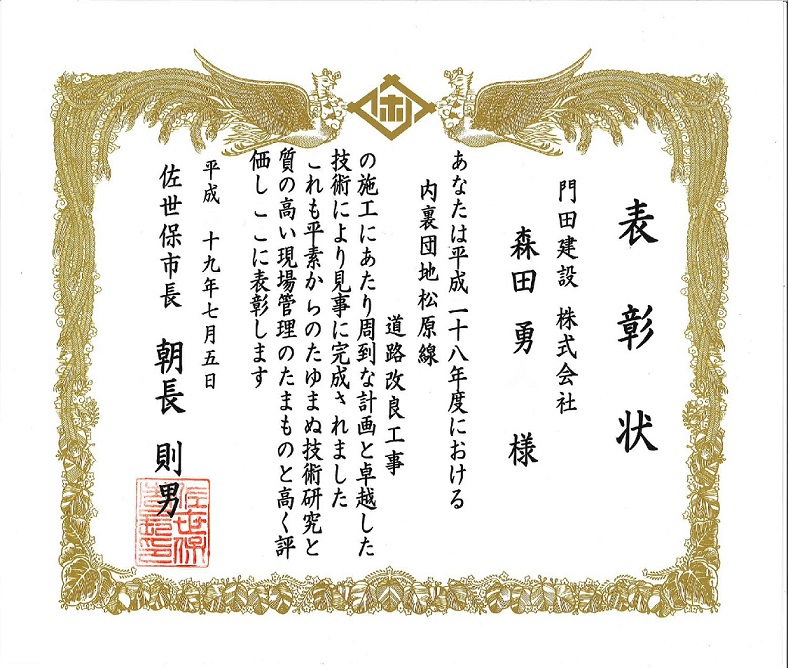 表彰状
門田建設 株式会社
森田勇 様
あなたは平成一十八年度における
内裏団地松原線
道路改良工事
の施工にあたり周到な計画と卓越した
技術により見事に完成されました
これも平素からのたゆまぬ技術研究と
質の高い現場管理のたまものと高く評
価しここに表彰します
平成 十九年七月五日
佐世保市長 朝長 則男
佐世保